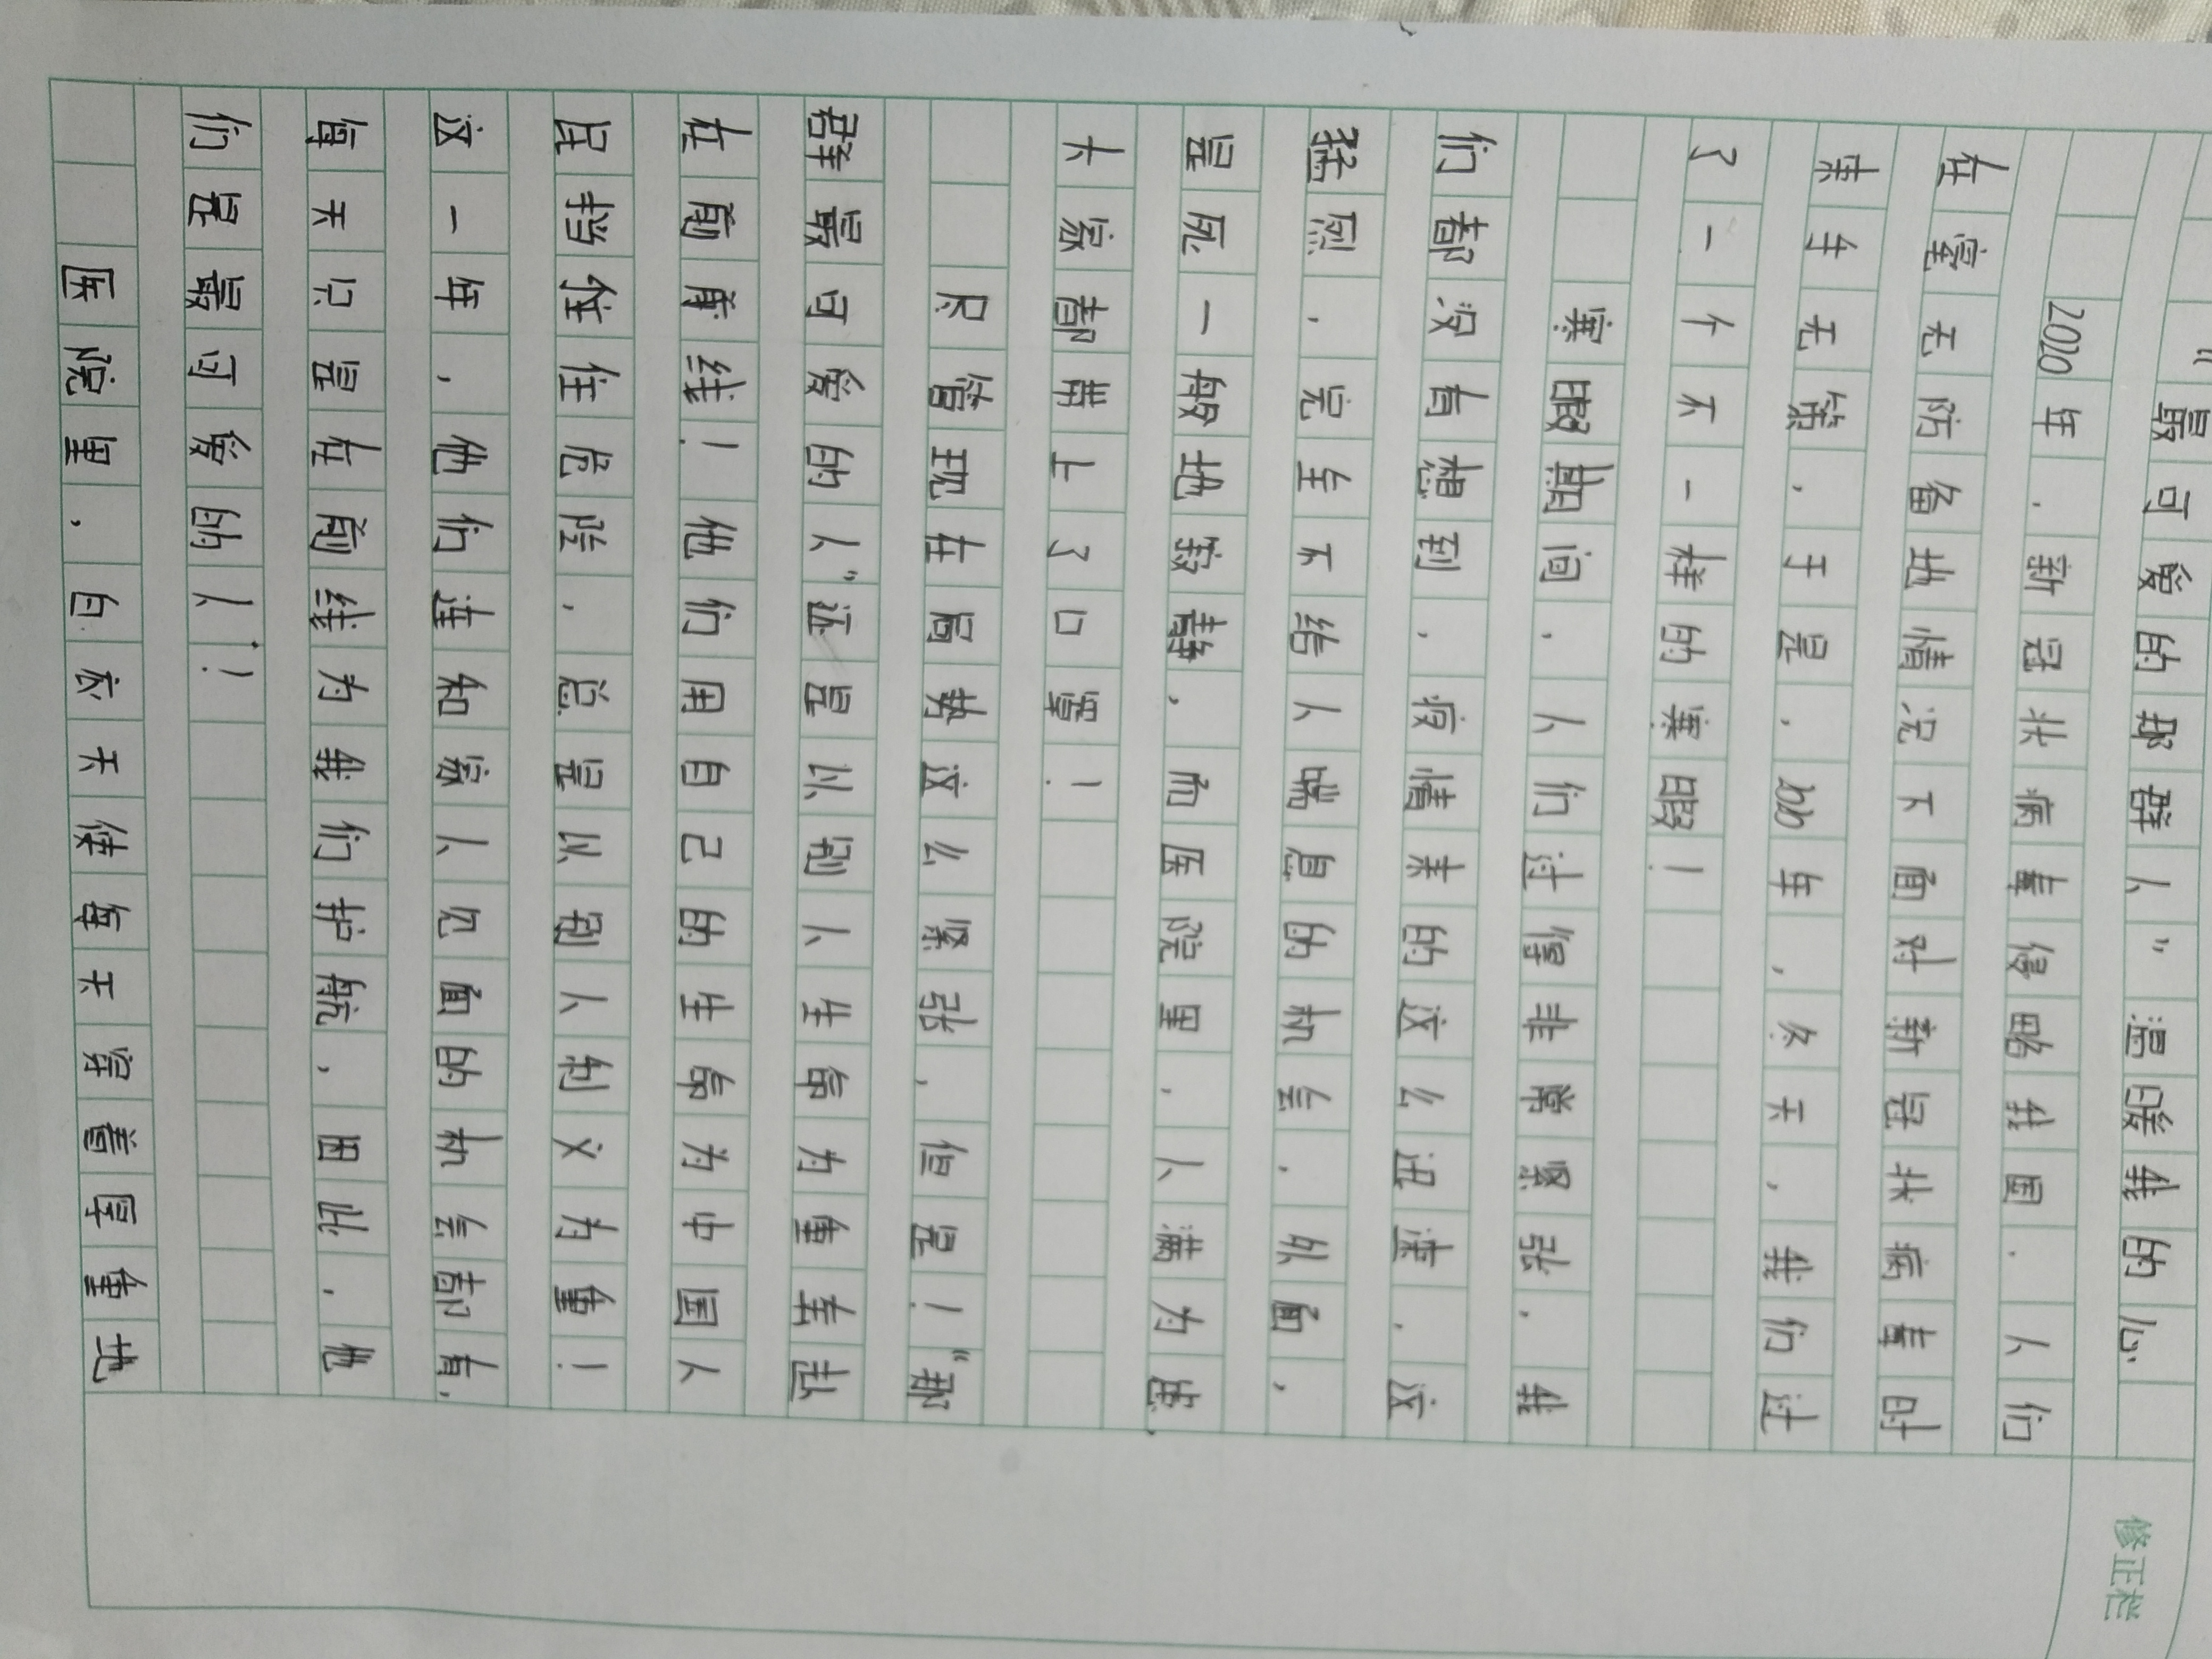 “最可爱的那群人”温暖我的心
2020年，新冠状病毒侵略我国，人们
在毫无防备地情况下面对新冠状病毒时
束手无策，于是，2020年，冬天，我们过
了一个不一样的寒假！
寒暇期间，人们过得非常紧张，我
们都没有想到，疫情来的这么迅速，这
猛烈，完全不给人喘息的机会，外面，
是死一般地寂静，而医院里，人满为患，
大家都带上了口罩！
尽管现在局势这么紧张，但是！“那
群最可爱的人”还是以别人生命为重奔赴
在前线！他们用自己的生命为中国人
民挡住住危险，总是以别人利义为重！
这一年，他们连和家人见面的机会都有，
每天只是在前线为我们护航，因此，他
们是最可爱的人！
医院里，白衣天使每天穿着厚重地
修正栏